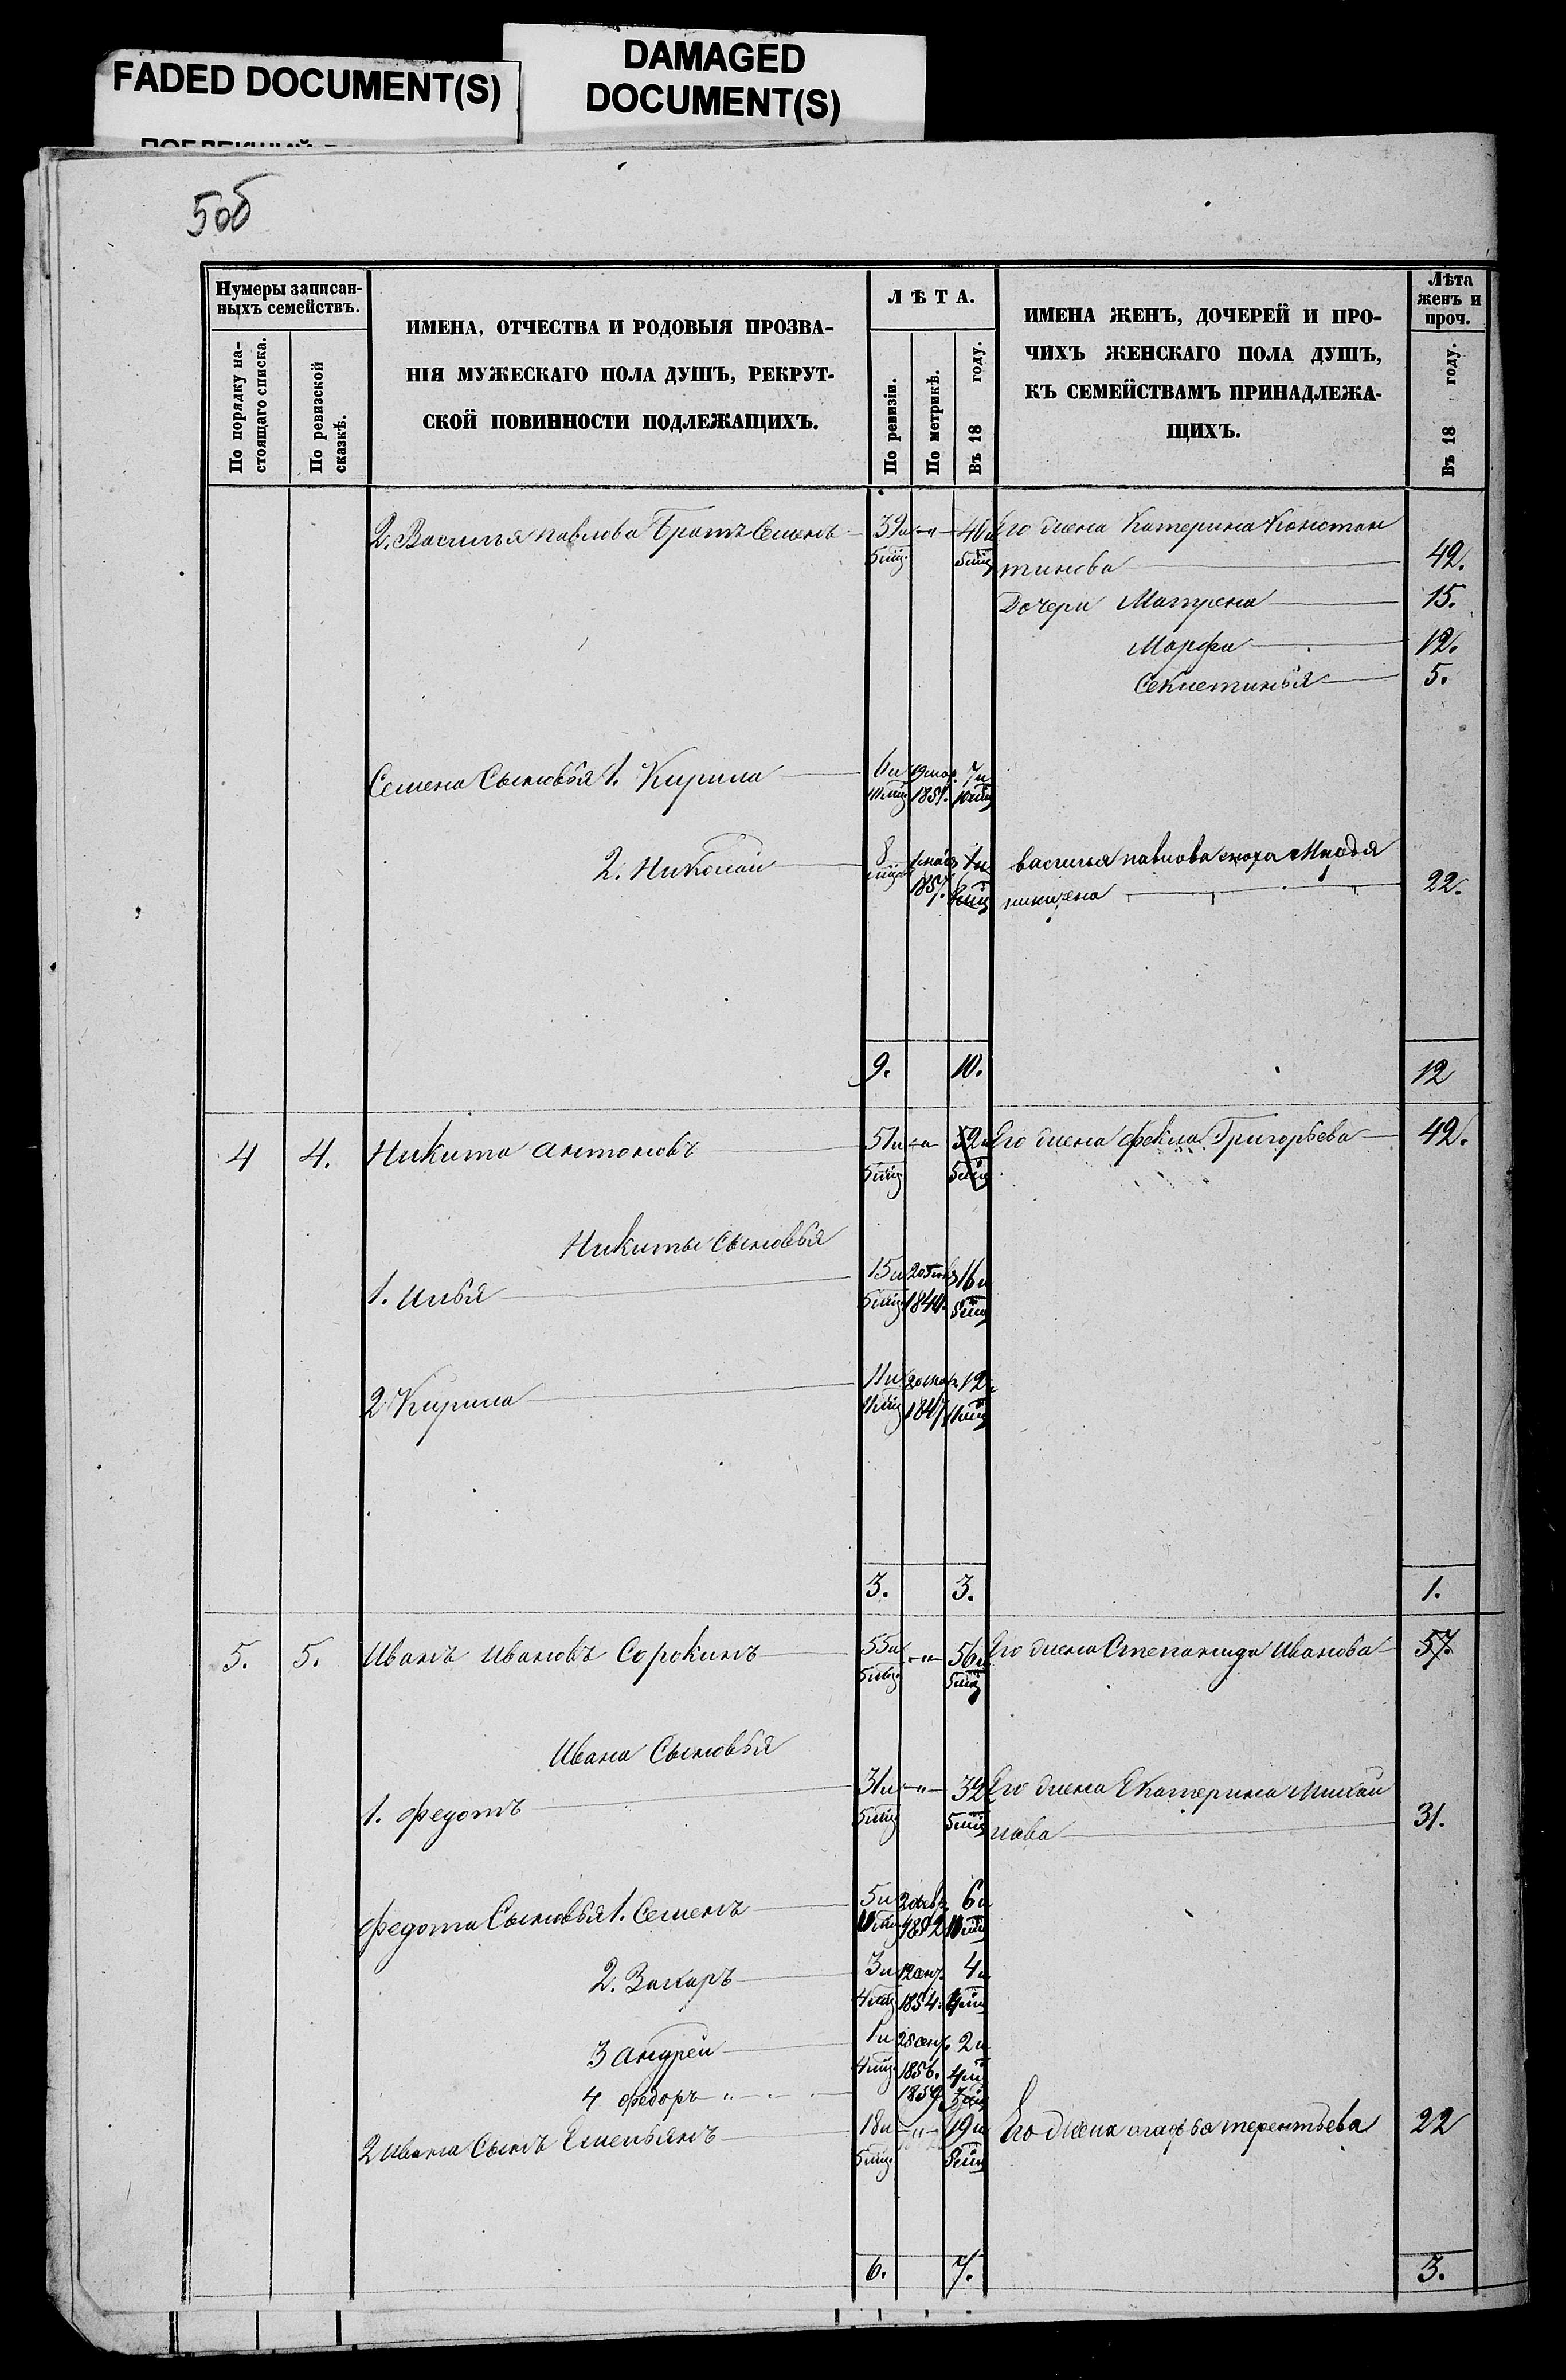 FADED DOCUMENT(S)
DAMAGED
DOCUMENT(S)
50б
Нумеры записан-
ныхъ семействъ.
По порядку на-
стоящаго списка.
По ревизской
сказкѣ.
ИМЕНА, ОТЧЕСТВА И РОДОВЫЯ ПРОЗВА-
НІЯ МУЖЕСКАГО ПОЛА ДУШЪ, РЕКРУТ-
СКОЙ ПОВИННОСТИ ПОДЛЕЖАЩИХЪ.
ЛѢТА.
По ревизіи.
По метрикѣ.
Въ 18 году.
ИМЕНА ЖЕНЪ, ДОЧЕРЕЙ И ПРО-
ЧИХЪ ЖЕНСКАГО ПОЛА ДУШЪ,
КЪ СЕМЕЙСТВАМЪ ПРИНАДЛЕЖА-
ЩИХЪ.
Лѣта
женъ и
проч.
Въ 18 году.
2. Василья павлова Братъ Семенъ 39 и 40 и Его жена Катерина Констан
5 мц. 5 мц тинова 42.
Дочери Матрена 15.
Марфа 12.
5.
Семена Сыновья 1. Кирила 6 и 7 и
1851.
2. Николай 8 василья павлова сноха
1857. 22.
9. 10. 12
4 4. Никита антоновъ 51 и 52 и Его жена фекла Григорьева 42.
5 мц 5 мц
Никиты Сыновья
1. Илья 15 и 16 и
5 мц 5 мц
2 Кирила 11 и 12
1847
3. 3. 1.
5. 5. Иванъ Ивановъ Сорокинъ 55 и 56 и Его жена Степанида Иванова 57.
5 мц 5 мц
Ивана Сыновья
1. федотъ 31 и 32 Его жена Екатерина Михаи
5 мц 5 мц лова 31.
федота Сыновья 1. Семенъ 5 и 2 6 и
1852
2. Захаръ 3 и 12 сен. 4 и
4 мц 1854. 4 мц
3 Андреи 1 и 28 сен. 2 и
4 мц 1856. 4 мц
4 федоръ 1859
2 Ивана Сынъ Емельянъ 18 и 19 и Его жена агафья терентьева 22
5 мц 5 мц
6. 7. 3.